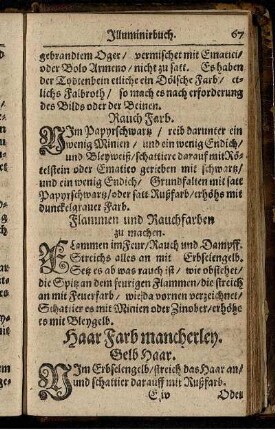 Illuminierbuch. 67
gebrandtem Oger/ vermischet mit Ematici/
oder Bolo Armeno/ nicht zu satt. Es haben
der Todtenbein etliche ein Dölsche Farb/ et-
lichs Falbroth/ so mach es nach erforderung
des Bilds oder der Beinen.
Rauch Farb.
NIm Papyrschwartz/ reib darunter ein
wenig Minien/ und ein wenig Endich/
und Bleyweiß/schattier darauf mit Rö-
telstein oder Ematito gerieben mit schwartz/
und ein wenig Endich/ Grundfalten mit satt
Papyrschwartz/oder satt Rußfarb/erhöhs mit
dunckelgrauer Farb.
Flammen und Rauchfarben
zu machen.
FLammen im Feur/Rauch und Dampff.
Streichs alles an mit Erbselengelb.
Setz es ab was rauch ist/ wie obstehet/
die Spitz an dem feurigen Flammen/die streich
an mit Feuerfarb/ wie da vornen verzeichnet/
Schattier es mit Minien oder Zinober/erhöhe
es mit Bleygelb.
Haar Farb mancherley.
Gelb Haar.
NIm Erbselengelb/streich das Haar an/
und schattier darauff mit Rußfarb.
E iv Oder